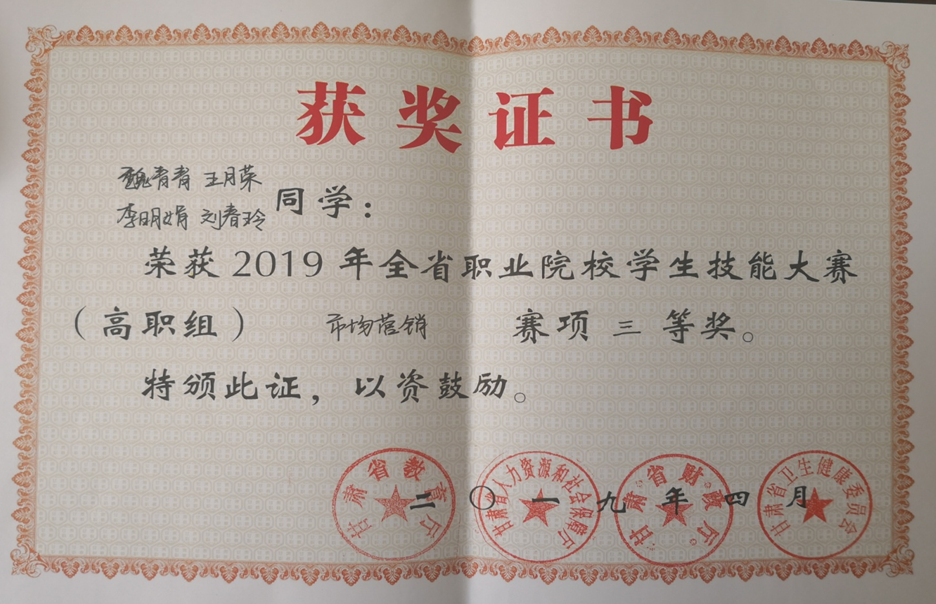 获奖证书
魏青青 王月荣
李明娟 刘春玲 同学：
荣获2019年全省职业院校学生技能大赛
（高职组） 市场营销 赛项 三 等奖。
特颁此证，以资鼓励。
甘肃省教育厅
甘肃省人力资源和社会保障厅
甘肃省财政厅
甘肃省卫生健康委员会
二〇一九年四月